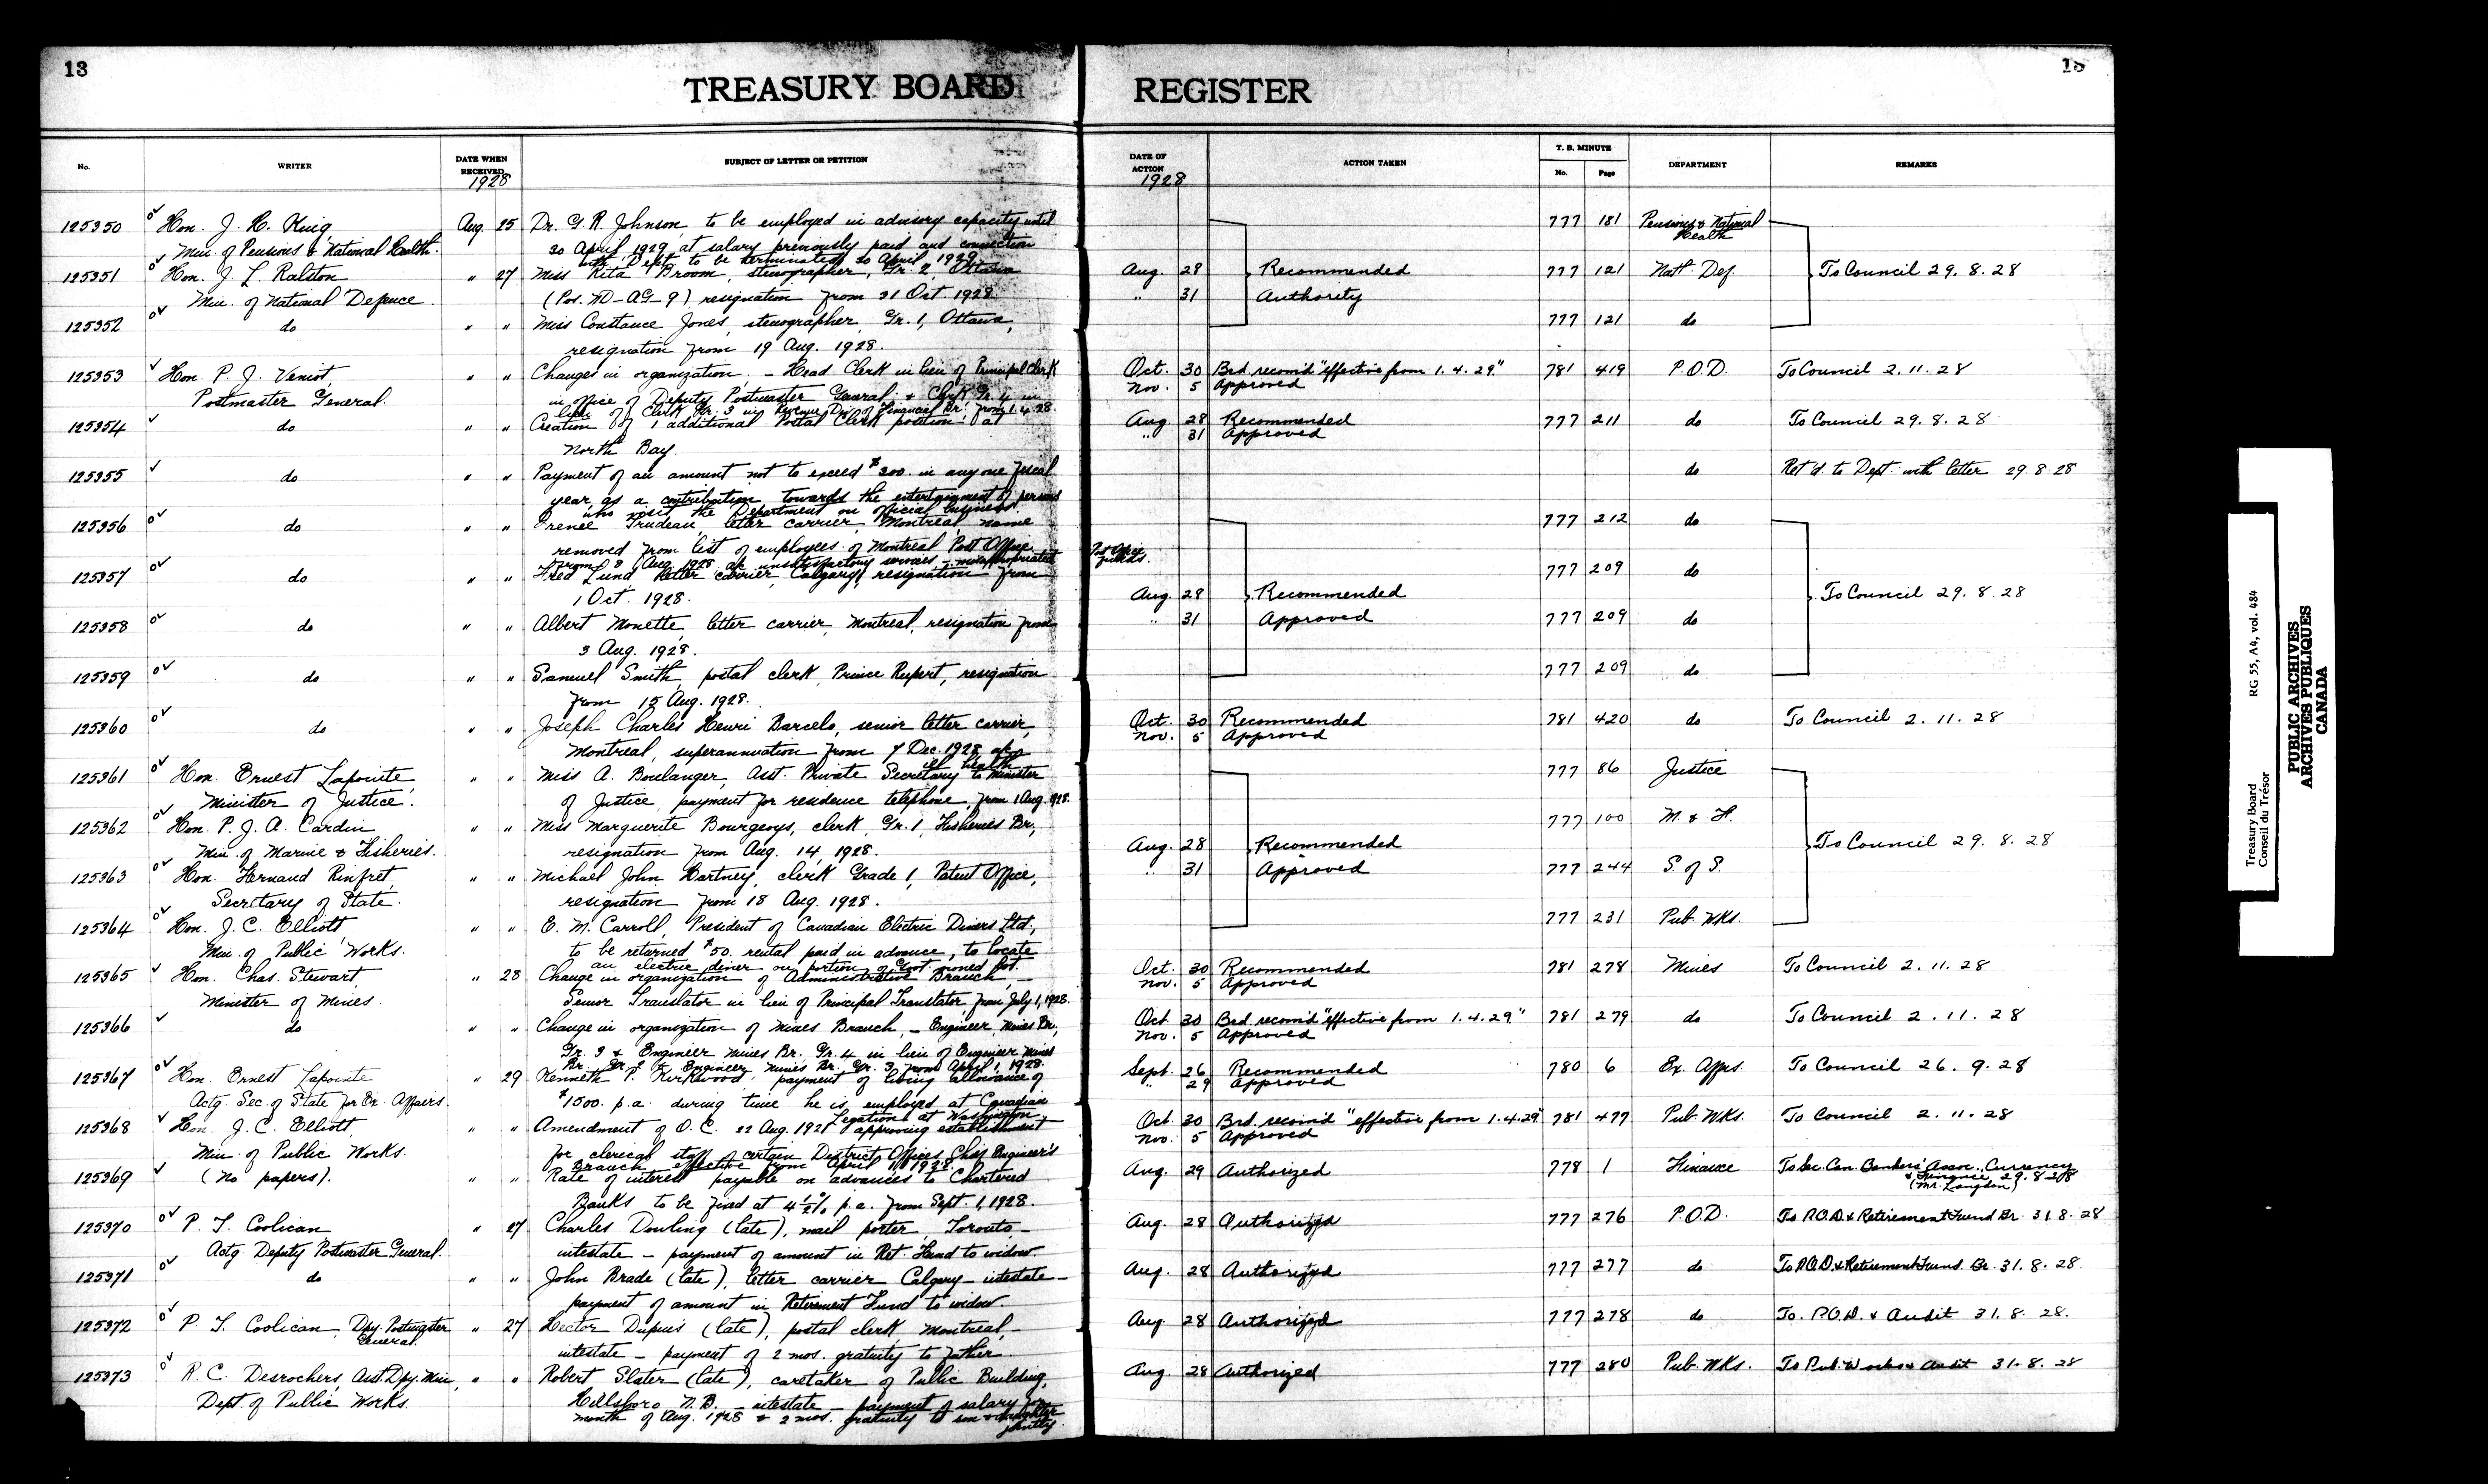 13
TREASURY BOARD REGISTER
No. WRITER DATE WHEN RECEIVED SUBJECT OF LETTER OR PETITION DATE OF ACTION ACTION TAKEN T. B. MINUTE No. Page DEPARTMENT REMARKS
1928 1928
125350 Hon. J. H. King Aug. 25 Dr. G. R. Johnson, to be employed in advisory capacity until 777 181 Pensions & National Health
Min. of Pensions & National Health. 30 April 1929, at salary previously paid and connection
with Dept. to be terminated 30 April, 1929.
125351 Hon. J. L. Ralston " 27 Miss Rita Broom, stenographer, Gr. 2, Ottawa Aug. 28 Recommended 777 121 Nat'l. Def. To Council 29.8.28
Min. of National Defence. (Pos. ND-AG-9) resignation from 31 Oct. 1928. " 31 Authority
125352 do " " Miss Constance Jones, stenographer, Gr. 1, Ottawa, 777 121 do
resignation from 19 Aug. 1928.
125353 Hon. P. J. Veniot, " " Changes in organization. - Head Clerk in lieu of Principal Clerk Oct. 30 Brd. recom'd "effective from 1.4.29." 781 419 P.O.D. To Council 2.11.28
Postmaster General. in office of Deputy Postmaster General; & Clerk Gr. 4 in Nov. 5 Approved
lieu of Clerk Gr. 3 in Revenue Div. of Financial Br. from 1.4.28.
125354 do " " Creation of 1 additional Postal Clerk position at Aug 28 Recommended 777 211 do To Council 29.8.28
North Bay. " 31 Approved
125355 do " " Payment of an amount not to exceed $300. in any one fiscal do Ret'd. to Dept. with letter 29.8.28
year, as a contribution towards the entertainment of persons
who visit the Department on official business.
125356 do " " Irenee Trudeau, letter carrier, Montreal, name 777 212 do
removed from list of employees of Montreal Post Office
from 8 Aug. 1928, a/c unsatisfactory services - misappropriated Post Office funds.
125357 do " " Fred Lund letter carrier, Calgary, resignation from 777 209 do
1 Oct. 1928. Aug. 28 Recommended To Council 29.8.28
125358 do " " Albert Monette, letter carrier, Montreal, resignation from " 31 Approved 777 209 do
3 Aug. 1928.
125359 do " " Samuel Smith, postal clerk, Prince Rupert, resignation 777 209 do
from 15 Aug. 1928.
125360 do " " Joseph Charles Henri Barcelo, senior letter carrier, Oct. 30 Recommended 781 420 do To Council 2.11.28
Montreal, superannuation from 7 Dec. 1928, a/c Nov. 5 Approved
ill health
125361 Hon. Ernest Lapointe, " " Miss A. Boulanger, Asst. Private Secretary to Minister 777 86 Justice
Minister of Justice. of Justice, payment for residence telephone, from 1 Aug. 1928.
125362 Hon. P. J. A. Cardin " " Miss Marguerite Bourgeoys, clerk, Gr. 1, Fisheries Br., 777 100 M. & F.
Min. of Marine & Fisheries. resignation from Aug. 14, 1928. Aug. 28 Recommended To Council 29.8.28
125363 Hon. Fernand Rinfret, " " Michael John Hartney, clerk Grade 1, Patent Office, " 31 Approved 777 244 S. of S.
Secretary of State. resignation from 18 Aug. 1928.
125364 Hon. J. C. Elliott " " E. M. Carroll, President of Canadian Electric Diners Ltd., 777 231 Pub. Wks.
Min. of Public Works. to be returned $50. rental paid in advance, to locate
an electric diner on portion of Govt. owned lot.
125365 Hon. Chas. Stewart, " 28 Change in organization of Administrative Branch, - Oct. 30 Recommended 781 278 Mines To Council 2.11.28
Minister of Mines. Senior Translator in lieu of Principal Translator, from July 1, 1928. Nov. 5 Approved
125366 do " " Change in organization of Mines Branch, - Engineer Mines Br., Oct. 30 Brd. recom'd "effective from 1.4.29" 781 279 do To Council 2.11.28
Gr. 3 & Engineer Mines Br. Gr. 4 in lieu of Engineer Mines Nov. 5 Approved
Br. Gr. 2 & Engineer Mines Br. Gr. 3, from April 1, 1928.
125367 Hon. Ernest Lapointe " 29 Kenneth P. Kirkwood, payment of living allowance of Sept. 26 Recommended 780 6 Ex. Affrs. To Council 26.9.28
Actg. Sec. of State for Ex. Affairs. $1500. p.a. during time he is employed at Canadian " 29 Approved
Legation at Washington.
125368 Hon. J. C. Elliott, " " Amendment of O.C. 22 Aug. 1927 approving establishment Oct 30 Brd. recom'd "effective from 1.4.29" 781 477 Pub. Wks. To Council 2.11.28
Min. of Public Works. for clerical staff of certain District Offices, Chief Engineer's Nov. 5 Approved
Branch effective from April 1, 1928.
125369 (No papers). " " Rate of interest payable on advances to Chartered Aug. 29 Authorized 778 1 Finance To Sec. Can. Bankers' Assn., Currency
Banks to be fixed at 4½% p.a. from Sept. 1, 1928. & Finance 29.8.28
(Mr. Langdon)
125370 P. T. Coolican " 27 Charles Dowling (late), mail porter, Toronto - Aug. 28 Authorized 777 276 P.O.D. To P.O.D. & Retirement Fund Br. 31.8.28
Actg. Deputy Postmaster General. intestate - payment of amount in Ret. Fund to widow.
125371 do " " John Brade (late), letter carrier Calgary - intestate - Aug. 28 Authorized 777 277 do To P.O.D. & Retirement Fund Br. 31.8.28
payment of amount in Retirement Fund to widow.
125372 P. T. Coolican, Dpy. Postmaster " 27 Hector Dupuis (late), postal clerk, Montreal, - Aug. 28 Authorized 777 278 do To. P.O.D. & Audit 31.8.28.
General. intestate - payment of 2 mos. gratuity to father.
125373 R. C. Desrochers, Asst. Dpy. Min., " " Robert Slater (late), caretaker of Public Building, Aug. 28 Authorized 777 280 Pub. Wks. To Pub. Works & Audit 31.8.28
Dept. of Public Works. Hillsboro N.B. - intestate - payment of salary for
month of Aug. 1928 & 2 mos. gratuity to son & daughter
jointly.
Treasury Board RG 55, A4, vol. 484
Conseil du Trésor
PUBLIC ARCHIVES
ARCHIVES PUBLIQUES
CANADA